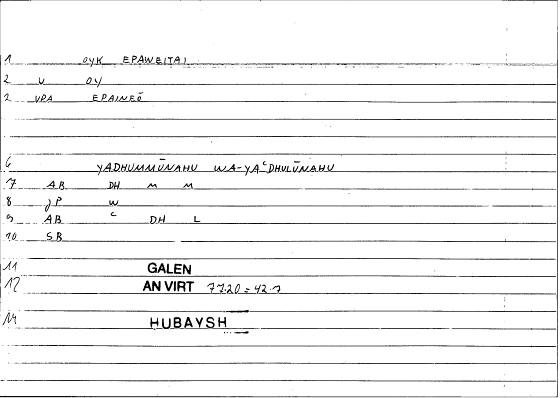 1 OYK EPAWEITAI
2 U OY
2 VPA EPAINEŌ
6 YADHUMMŪNAHU WA-YAᶜDHULŪNAHU
7 AB DH M M
8 JP W
9 AB ᶜ DH L
10 SB
11 GALEN
12 AN VIRT 77.20 = 42.7
14 HUBAYSH